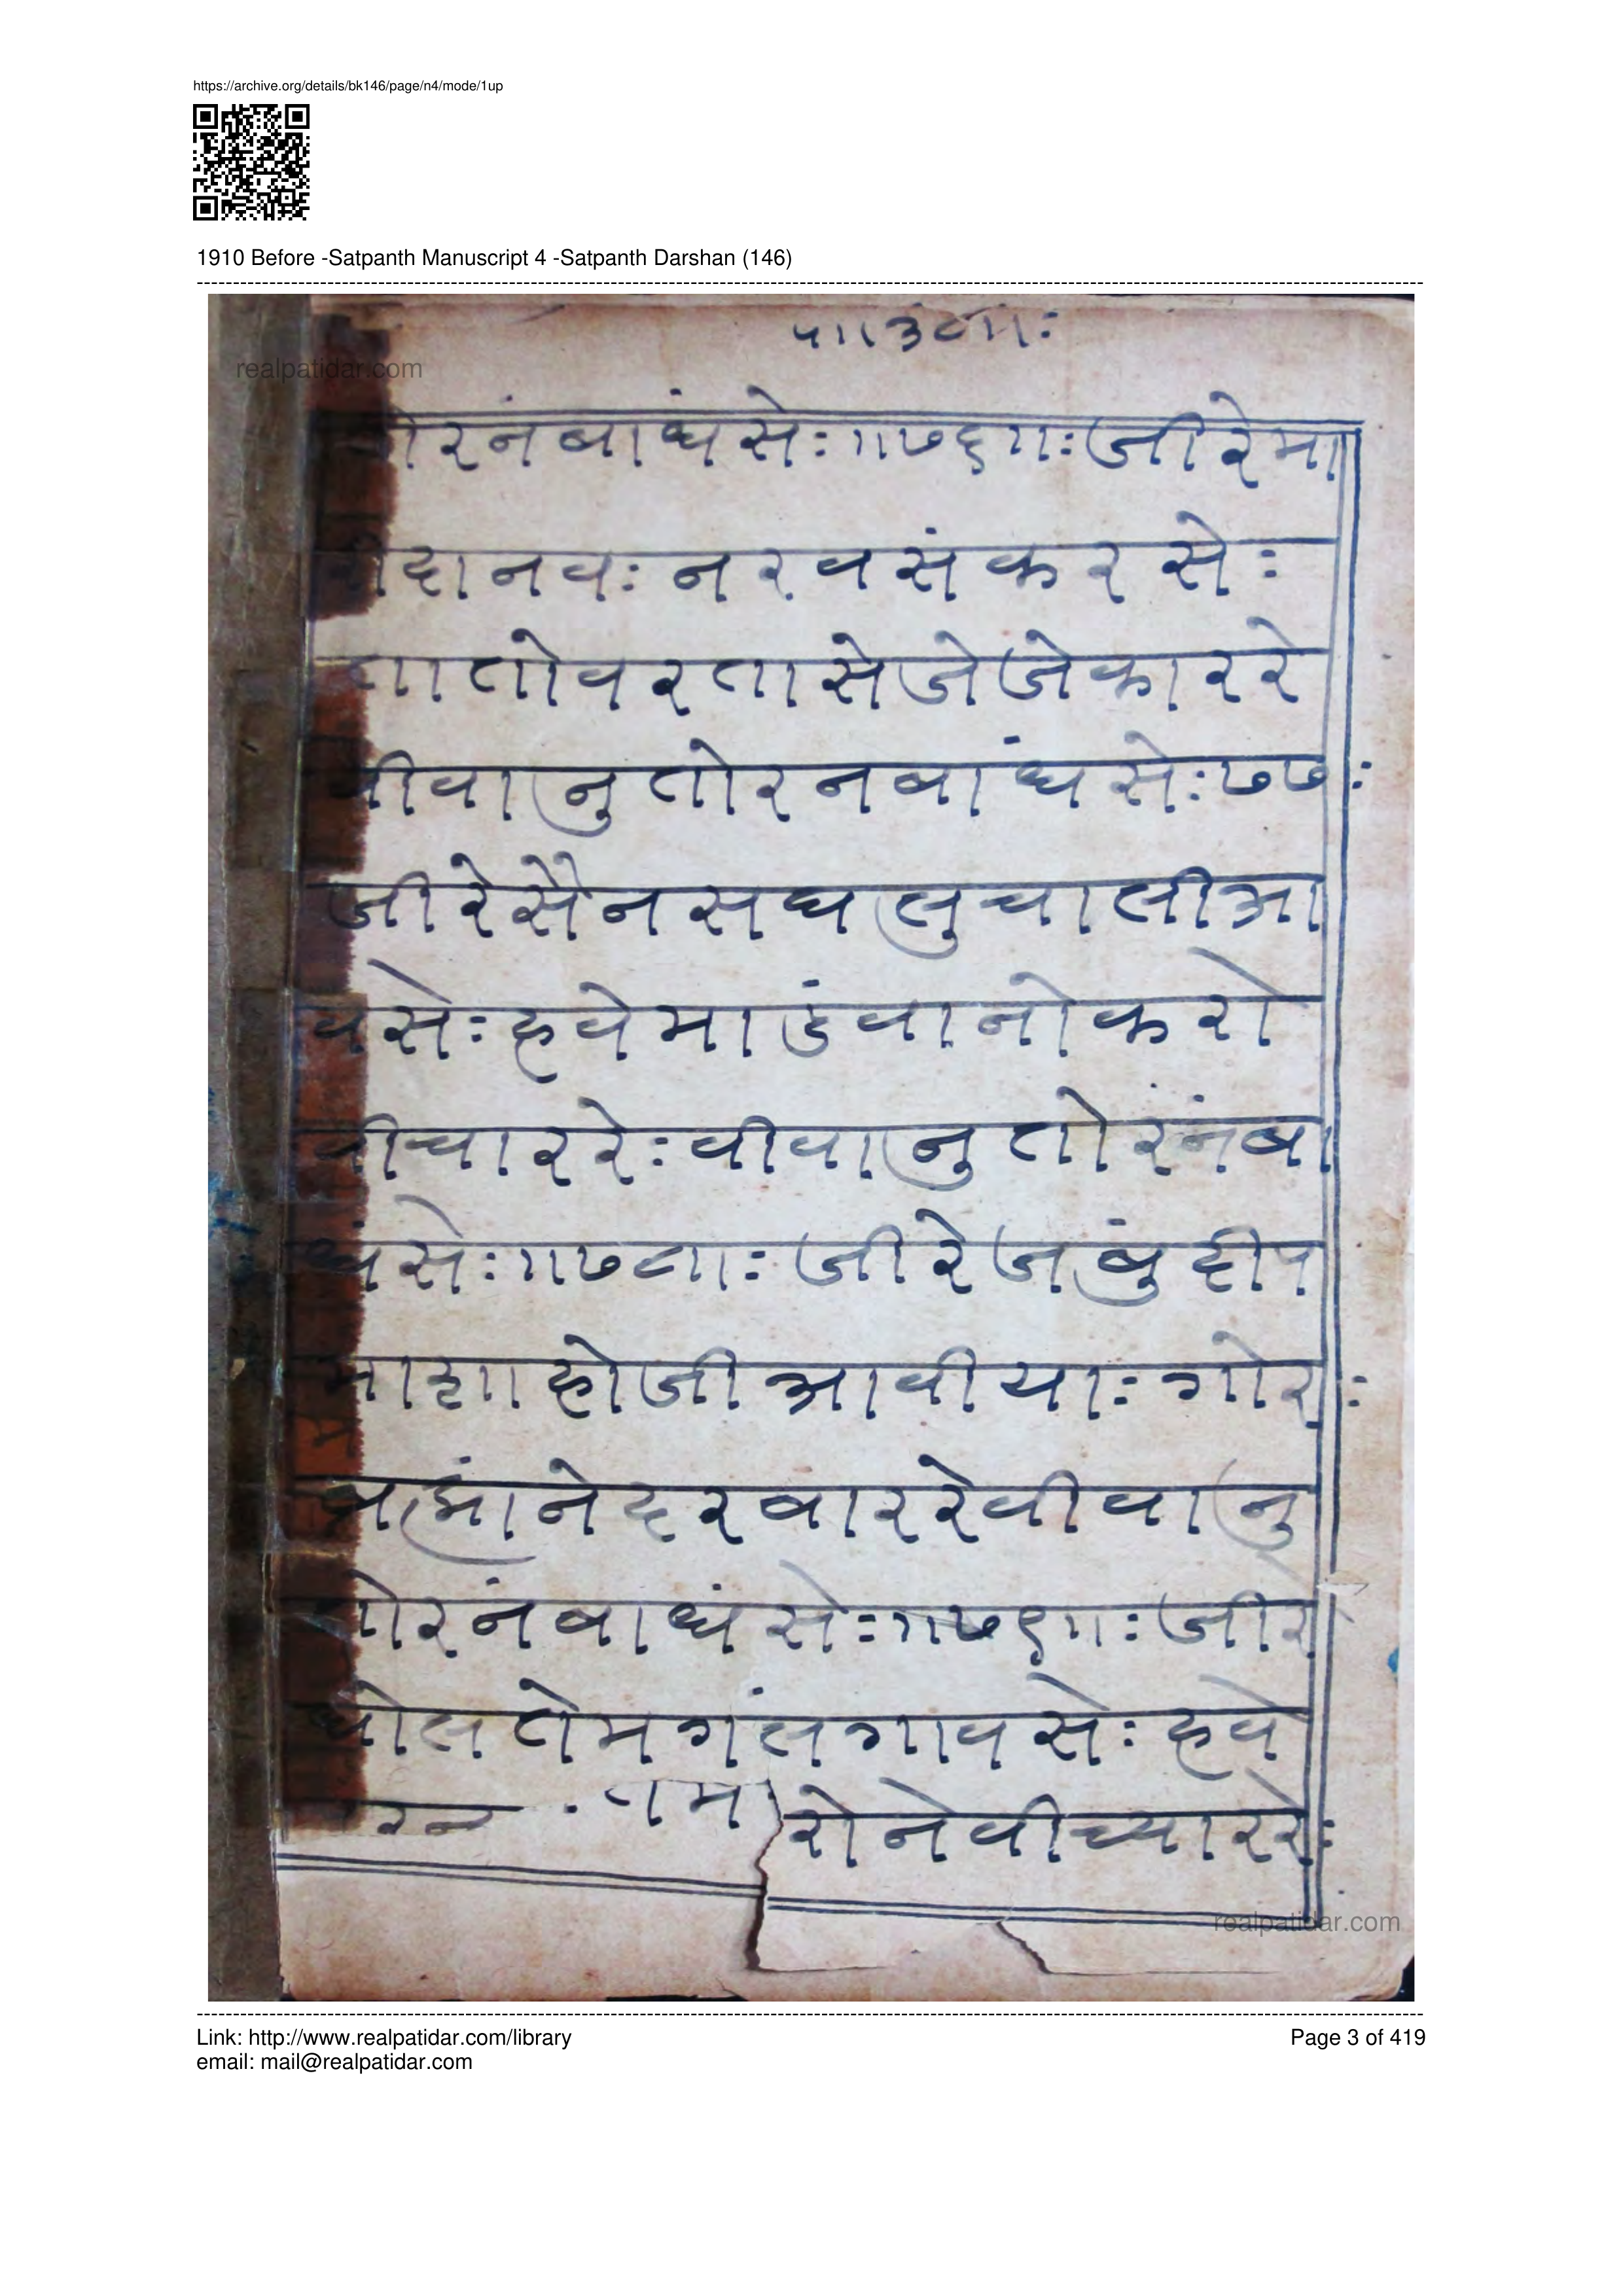 https://archive.org/details/bk146/page/n4/mode/1up
1910 Before -Satpanth Manuscript 4 -Satpanth Darshan (146)
realpatidar.com
तोरनंबाधंसे:॥७६॥:जीरेमा
दानव: नरवसंकरसे:
तातोवरतासेजेजेकाररे
वीवानुतोरनबांधसे:७७:
जीरेसैनसघलुचालीआ
वसे:हवेमाडंवानोकरो
वीचाररे:वीवानुतोरंनंबा
धंसे:॥७८॥:जीरेजबुंदीप
माहाहोजीआवीया:गोर:
ब्राह्मांनेदरबाररेवीवानु
तोरनंबाधंसे:॥७९॥:जीरे
धोलतेमगंलगावसे:हवे
रोनेवीच्याररे:
realpatidar.com
Link: http://www.realpatidar.com/library
Page 3 of 419
email: mail@realpatidar.com